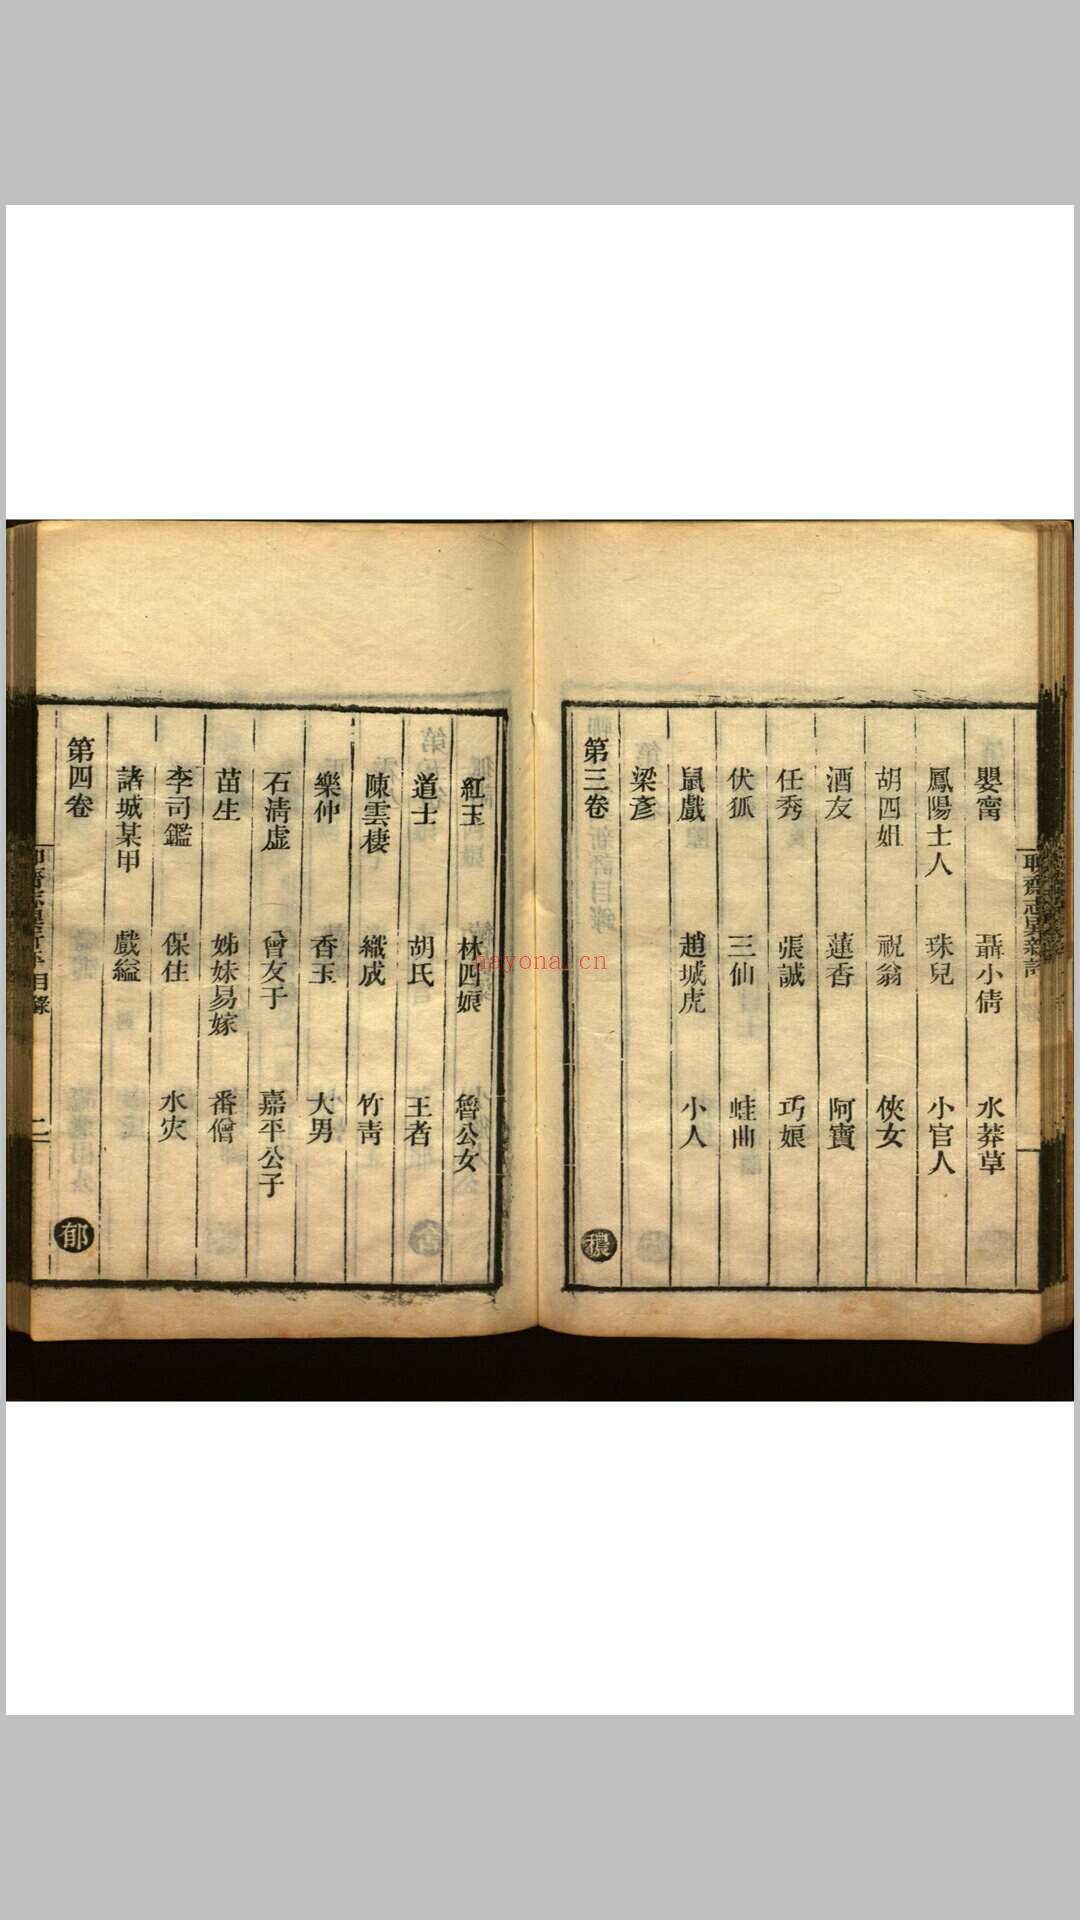 聊齋志異新評
嬰甯 聶小倩 水莽草
鳳陽士人 珠兒 小官人
胡四姐 祝翁 俠女
酒友 蓮香 阿寶
任秀 張誠 巧娘
伏狐 三仙 蛙曲
鼠戲 趙城虎 小人
梁彥
第三卷
穠
紅玉 林四娘 魯公女
道士 胡氏 王者
陳雲棲 織成 竹青
樂仲 香玉 大男
石清虛 曾友于 嘉平公子
苗生 姊妹易嫁 番僧
李司鑑 保住 水灾
諸城某甲 戲縊
第四卷
郁
目錄 二
nayona.cn